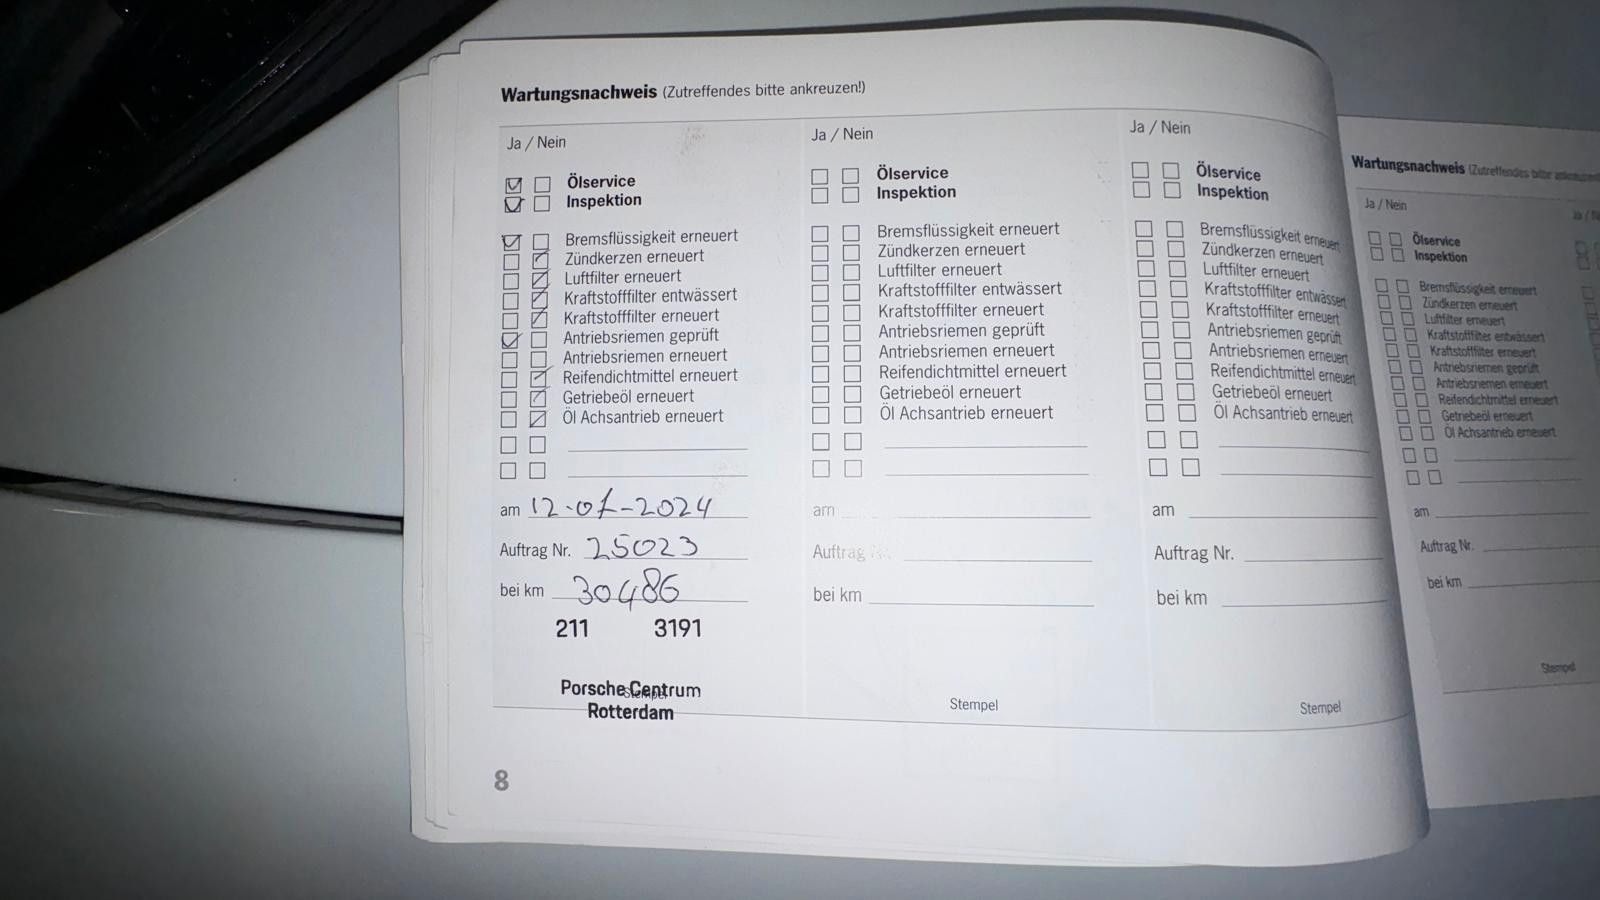 Wartungsnachweis (Zutreffendes bitte ankreuzen!)
Ja / Nein
Ölservice
Inspektion
Bremsflüssigkeit erneuert
Zündkerzen erneuert
Luftfilter erneuert
Kraftstofffilter entwässert
Kraftstofffilter erneuert
Antriebsriemen geprüft
Antriebsriemen erneuert
Reifendichtmittel erneuert
Getriebeöl erneuert
Öl Achsantrieb erneuert
am 12-01-2024
Auftrag Nr. 25023
bei km 30486
211 3191
Stempel
Porsche Centrum
Rotterdam
8
Ja / Nein
Ölservice
Inspektion
Bremsflüssigkeit erneuert
Zündkerzen erneuert
Luftfilter erneuert
Kraftstofffilter entwässert
Kraftstofffilter erneuert
Antriebsriemen geprüft
Antriebsriemen erneuert
Reifendichtmittel erneuert
Getriebeöl erneuert
Öl Achsantrieb erneuert
am
Auftrag Nr.
bei km
Stempel
Ja / Nein
Ölservice
Inspektion
Bremsflüssigkeit erneuert
Zündkerzen erneuert
Luftfilter erneuert
Kraftstofffilter entwässert
Kraftstofffilter erneuert
Antriebsriemen geprüft
Antriebsriemen erneuert
Reifendichtmittel erneuert
Getriebeöl erneuert
Öl Achsantrieb erneuert
am
Auftrag Nr.
bei km
Stempel
Wartungsnachweis (Zutreffendes bitte ankreuzen
Ja / Nein
Ölservice
Inspektion
Bremsflüssigkeit erneuert
Zündkerzen erneuert
Luftfilter erneuert
Kraftstofffilter entwässert
Kraftstofffilter erneuert
Antriebsriemen geprüft
Antriebsriemen erneuert
Reifendichtmittel erneuert
Getriebeöl erneuert
Öl Achsantrieb erneuert
am
Auftrag Nr.
bei km
Stempel